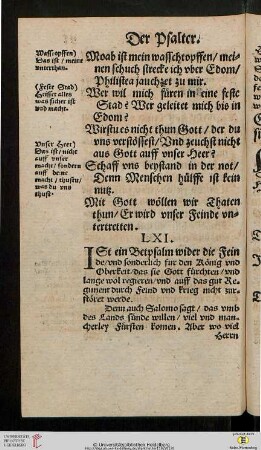 Der Psalter.
Wasschtopffen)
Das ist / meine
vnterthan.
(Feste Stad)
Heisset alles
was sicher ist
vnd macht.
Vnser Heer)
Das ist / nicht
auff vnser
macht / sondern
auff deine
macht / thustu /
was du vns
thust.
Moab ist mein wasschtopffen / mei-
nen schuch strecke ich vber Edom /
Philistea jauchzet zu mir.
Wer wil mich füren in eine feste
Stad? Wer geleitet mich bis in
Edom?
Wirstu es nicht thun Gott / der du
vns verstössest / Vnd zeuchst nicht
aus Gott auff vnser Heer?
Schaff vns beystand in der not /
Denn Menschen hülffe ist kein
nutz.
Mit Gott wöllen wir Thaten
thun / Er wird vnser Feinde vn-
tertretten.
LXI.
ISt ein Betpsalm wider die Fein
de / vnd sonderlich für den König vnd
Oberkeit / das sie Gott fürchten / vnd
lange wol regieren / vnd auff das gut Re-
giment durch Feind vnd krieg nicht zur-
störet werde.
Denn auch Salomo sagt / das vmb
des Lands sünde willen / viel vnd man-
cherley Fürsten komen. Aber wo viel
Herrn
Universitätsbibliothek Heidelberg